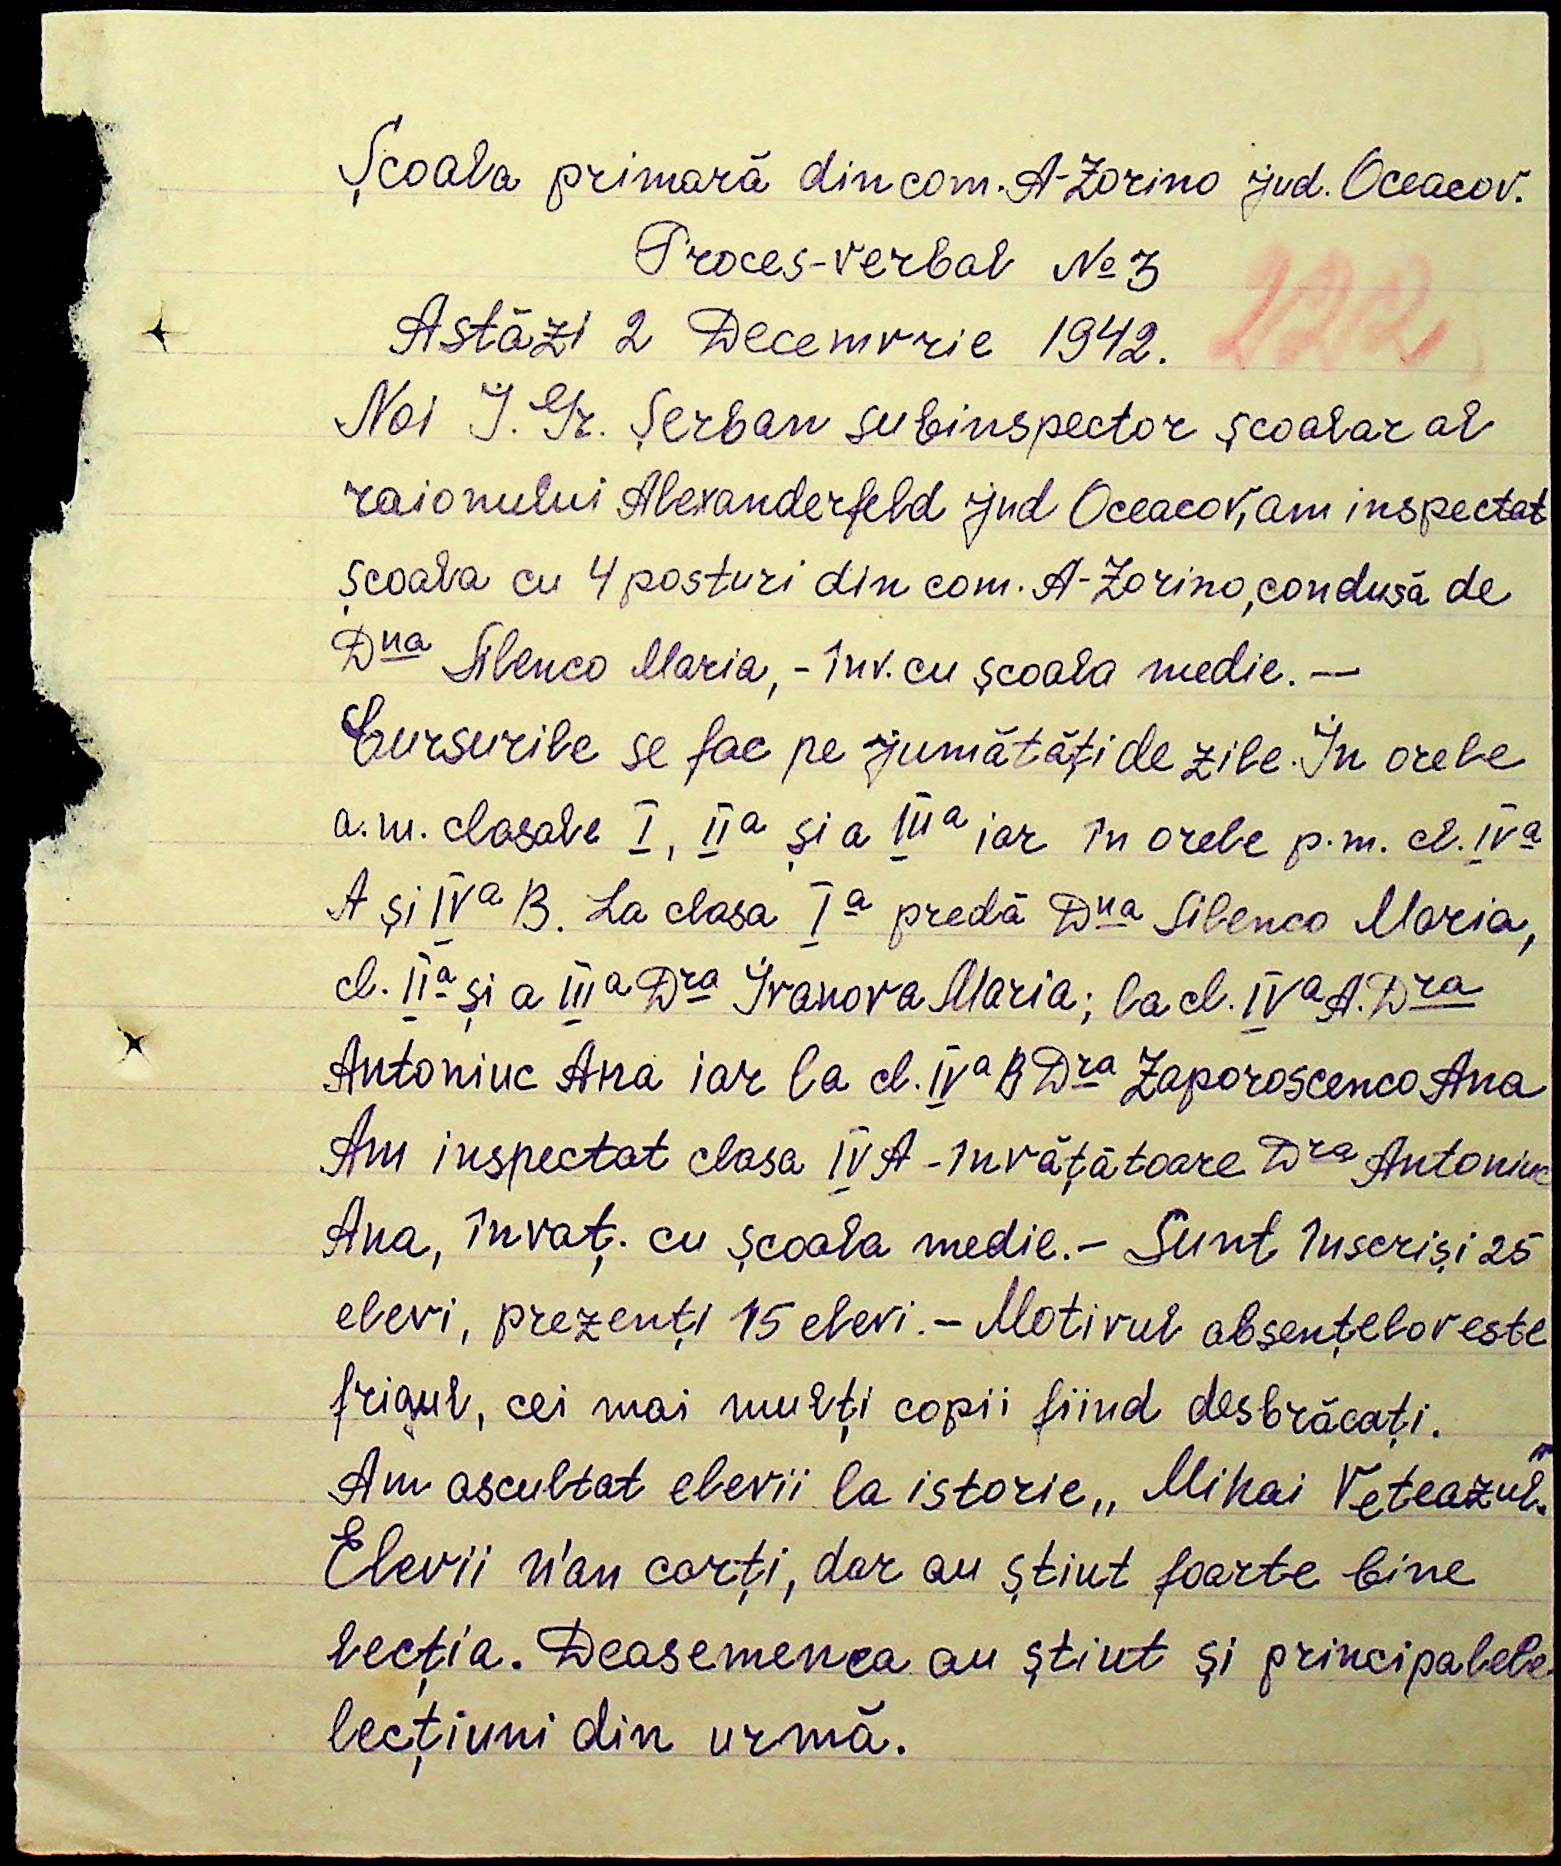 Școala primară din com. A-Zorino jud. Oceacov.
Proces-verbal № 3
222
Astăzi 2 Decemvrie 1942.
Noi I. Gr. Șerban subinspector școalar al
raionului Alexanderfeld jud Oceacov, am inspectat
școala cu 4 posturi din com. A-Zorino, condusă de
Dna Silenco Maria, - înv. cu școala medie. —
Cursurile se fac pe jumătăți de zile. In orele
a.m. clasale I, IIa și a IIIa iar în orele p.m. cl. IVa
A și IVa B. La clasa Ia predă Dna Silenco Maria,
cl. IIa și a IIIa Dra Ivanova Maria; la cl. IVa A. Dra
Antoniuc Ana iar la cl. IVa B Dra Zaporoscenco Ana
Am inspectat clasa IV A - învățătoare Dra Antoniuc
Ana, învaț. cu școala medie. - Sunt înscriși 25
elevi, prezenți 15 elevi. - Motivul absențelor este
frigul, cei mai mulți copii fiind desbrăcați.
Am ascultat elevii la istorie „Mihai Veteazul".
Elevii n'au carți, dar au știut foarte bine
lecția. Deasemenea au știut și principalele
lecțiuni din urmă.